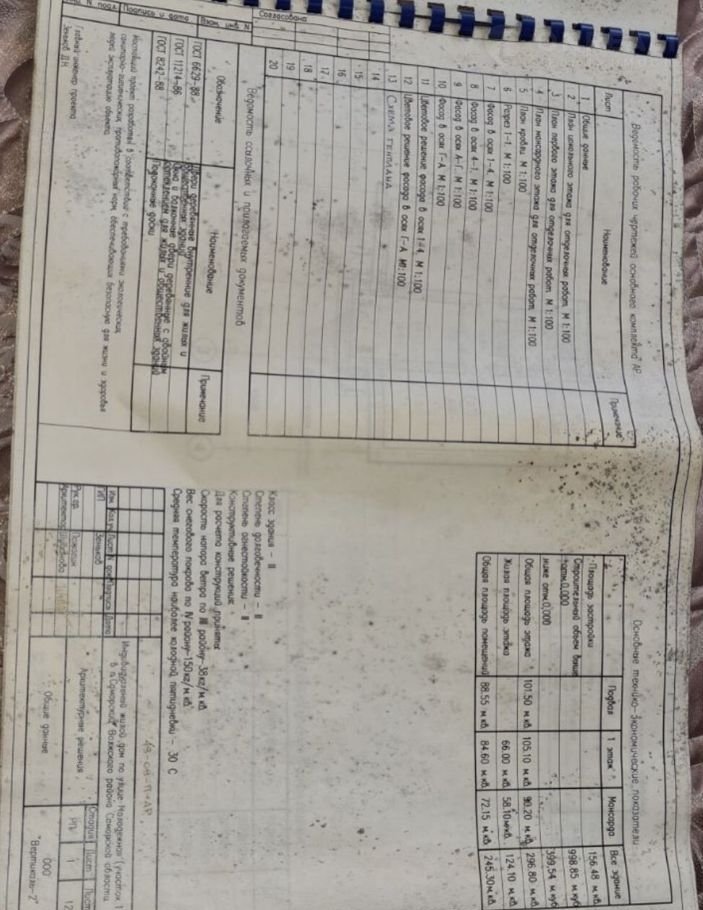 Ведомость рабочих чертежей основного комплекта АР
Лист Наименование Примечание
1 Общие данные
2 План цокольного этажа для отделочных работ. М 1:100
3 План первого этажа для отделочных работ. М 1:100
4 План мансардного этажа для отделочных работ. М 1:100
5 План кровли. М 1:100
6 Разрез 1-1. М 1:100
7 Фасад в осях 1-4. М 1:100
8 Фасад в осях 4-1. М 1:100
9 Фасад в осях А-Г. М 1:100
10 Фасад в осях Г-А. М 1:100
11 Цветовое решение фасада в осях 1-4. М 1:100
12 Цветовое решение фасада в осях Г-А. М 1:100
13 СХЕМА ГЕНПЛАНА
14
15
16
17
18
19
20
Ведомость ссылочных и прилагаемых документов
Обозначение Наименование Примечание
ГОСТ 6629-88 Двери деревянные внутренние для жилых и общественных зданий
ГОСТ 11214-86 Окна и балконные двери деревянные с двойным остеклением для жилых и общественных зданий
ГОСТ 8242-88 Подоконные доски
Настоящий проект разработан в соответствии с требованиями экологических,
санитарно-гигиенических, противопожарных норм, обеспечивающих безопасную для жизни и здоровья
людей эксплуатацию объекта.
Главный инженер проекта
Зеньков Д.Н.
Согласовано
Взам. инв. N
Подпись и дата
Инв. N подл.
Основные технико-экономические показатели
Подвал 1 этаж Мансарда Все здание
Площадь застройки 156.48 м.кв.
Строительный объем выше отм.0,000 998.85 м.куб
ниже отм.0,000 399,54 м.куб
Общая площадь этажа 101.50 м.кв. 105.10 м.кв. 90.20 м.кв. 296.80 м.кв.
Жилая площадь этажа 66.00 м.кв. 58.10 м.кв. 124.10 м.кв.
Общая площадь помещений 88.55 м.кв. 84.60 м.кв. 72.15 м.кв. 245.30 м.кв.
Класс здания - II
Степень долговечности - II
Степень огнестойкости - II
Конструктивные решения:
Для расчета конструкций приняты
Скорость напора ветра по III району-38кг/м.кв.
Вес снегового покрова по IV району-150кг/м.кв.
Средняя температура наиболее холодной пятидневки - 30 С
Индивидуальный жилой дом по улице Молодежная (участок 1
в п.Самарский, Волжского района, Самарской области.
Изм. Кол.уч Лист N док Подпись Дата
ГИП Зеньков
Рук.гр.
Архитектор
Архитектурные решения
Стадия Лист Лист
РП 1 12
Общие данные
ООО
"Вертикаль-2"